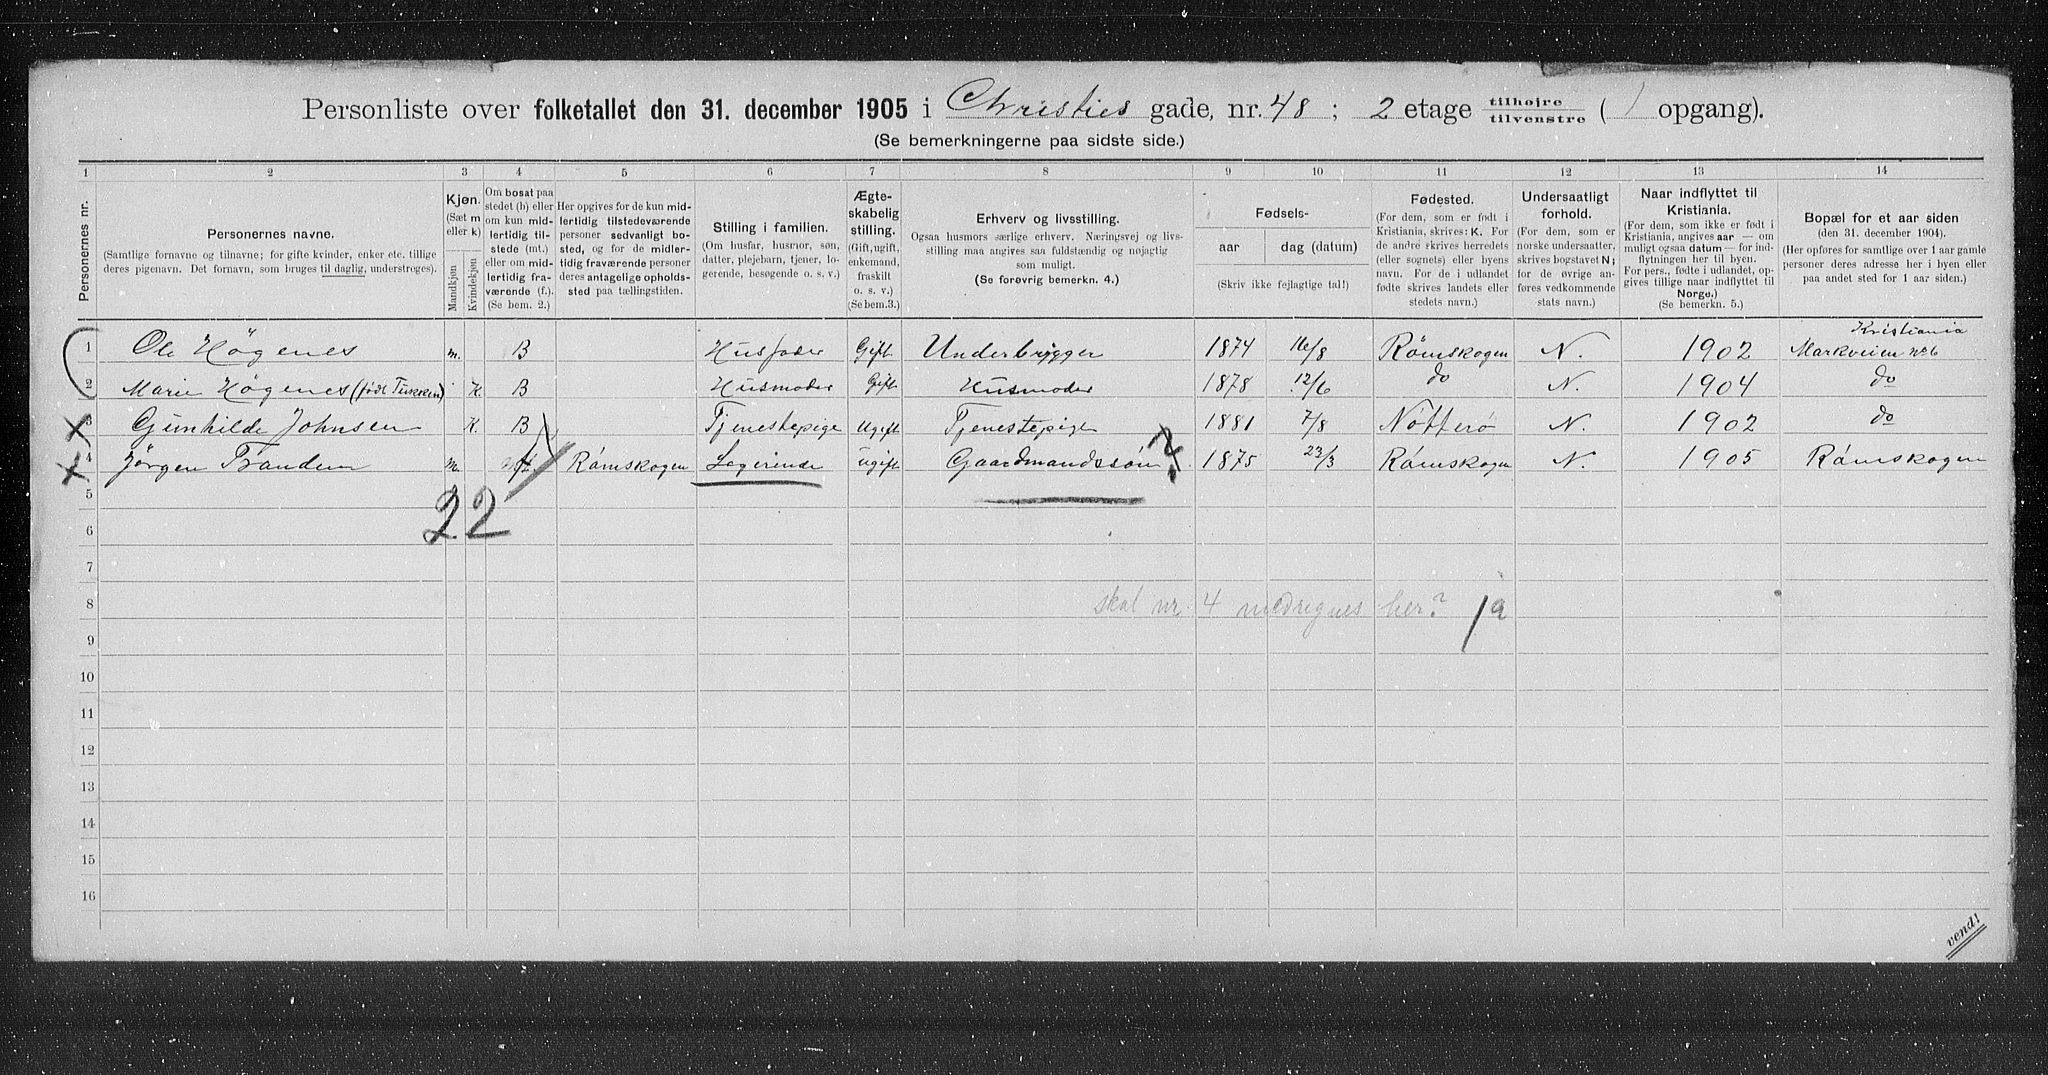 Personliste over folketallet den 31. december 1905 i Christies gade, nr. 48; 2 etage tilhøjre tilvenstre (1 opgang).
(Se bemerkningerne paa sidste side.)
1 2 3 4 5 6 7 8 9 10 11 12 13 14
Personernes nr.
Personernes navne.
(Samtlige fornavne og tilnavne; for gifte kvinder, enker etc. tillige deres pigenavn. Det fornavn, som bruges til daglig, understroges).
Kjøn.
(Sæt m eller k)
Mandkjøn
Kvindekjøn
Om bosat paa stedet (b) eller om kun midlertidig tilstede (mt.) eller om midlertidig fraværende (f.). (Se bem. 2.)
Her opgives for de kun midlertidig tilstedeværende personer sedvanligt bosted, og for de midlertidig fraværende personer deres antagelige opholdssted paa tællingstiden.
Stilling i familien.
(Om husfar, husmor, søn, datter, plejebarn, tjener, logerende, besøgende o. s. v.)
Ægteskabelig stilling.
(Gift, ugift, enkemand, fraskilt o. s. v.) (Se bem. 3.)
Erhverv og livsstilling.
Ogsaa husmors særlige erhverv. Næringsvej og livsstilling maa angives saa fuldstændig og nøjagtig som muligt.
(Se forøvrig bemerkn. 4.)
Fødsels-
aar
dag (datum)
(Skriv ikke fejlagtige tal!)
Fødested.
(For dem, som er født i Kristiania, skrives: K. For de andre skrives herredets (eller sognets) eller byens navn. For de i udlandet fødte skrives landets eller stedets navn.)
Undersaatligt forhold.
(For dem, som er norske undersaatter, skrives bogstavet N; for de øvrige anføres vedkommende stats navn.)
Naar indflyttet til Kristiania.
(For dem, som ikke er født i Kristiania, angives aar — om muligt ogsaa datum — for indflytningen her til byen. For pers., fødte i udlandet, opgives tillige naar indflyttet til Norge.)
(Se bemerkn. 5.)
Bopæl for et aar siden
(den 31. december 1904).
(Her opføres for samtlige over 1 aar gamle personer deres adresse her i byen eller paa andet sted for 1 aar siden.)
1 Ole Høgenes m. B Husfader Gift Underbrygger 1874 16/8 Rømskogen N. 1902 Kristiania Markveien No 6
2 Marie Høgenes (født Tukken) K. B Husmoder Gift Husmoder 1878 12/6 do N. 1904 do
3 Gunhilde Johnsen K. B Tjenestepige Ugift Tjenestepige 1881 7/8 Nøtterø N. 1902 do
4 Jørgen Trandem m. Rømskogen Logerende ugift Gaardmandssøn ? 1875 23/3 Rømskogen N. 1905 Rømskogen
5
22
6
7
8 skal nr. 4 medregnes her? ja
9
10
11
12
13
14
15
16
vend!